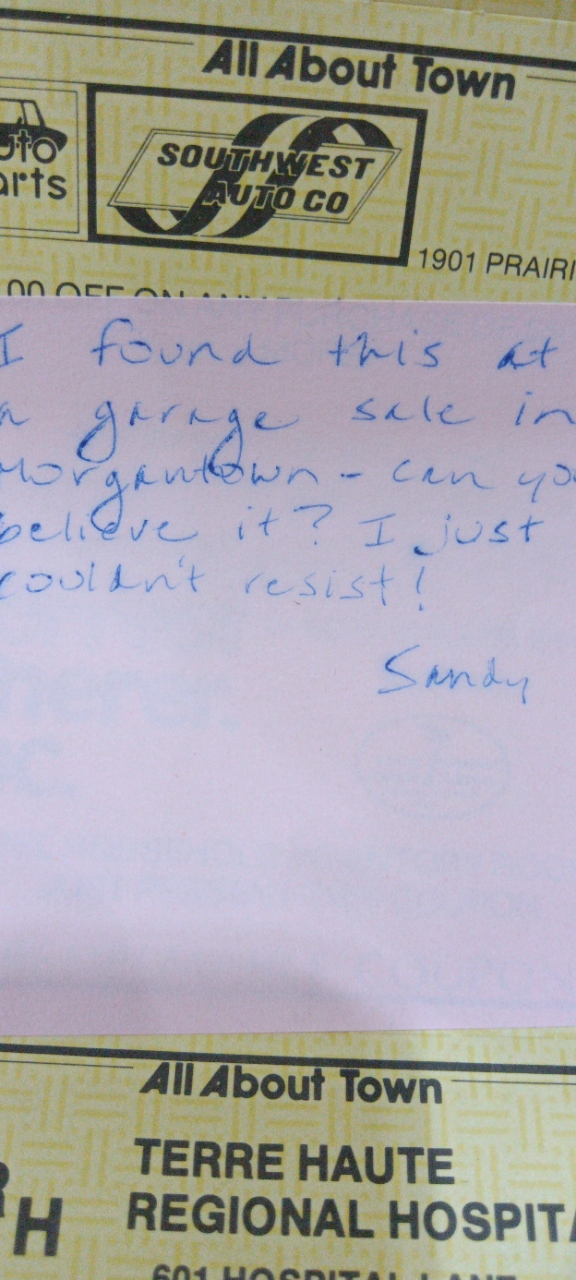 All About Town
uto
arts
SOUTHWEST
AUTO CO
1901 PRAIRI
00 OFF ON ANY
I found this at
a garage sale in
Morgantown - can you
believe it? I just
couldn't resist!
Sandy
All About Town
RH
TERRE HAUTE
REGIONAL HOSPITA
601 HOSPITAL LANE